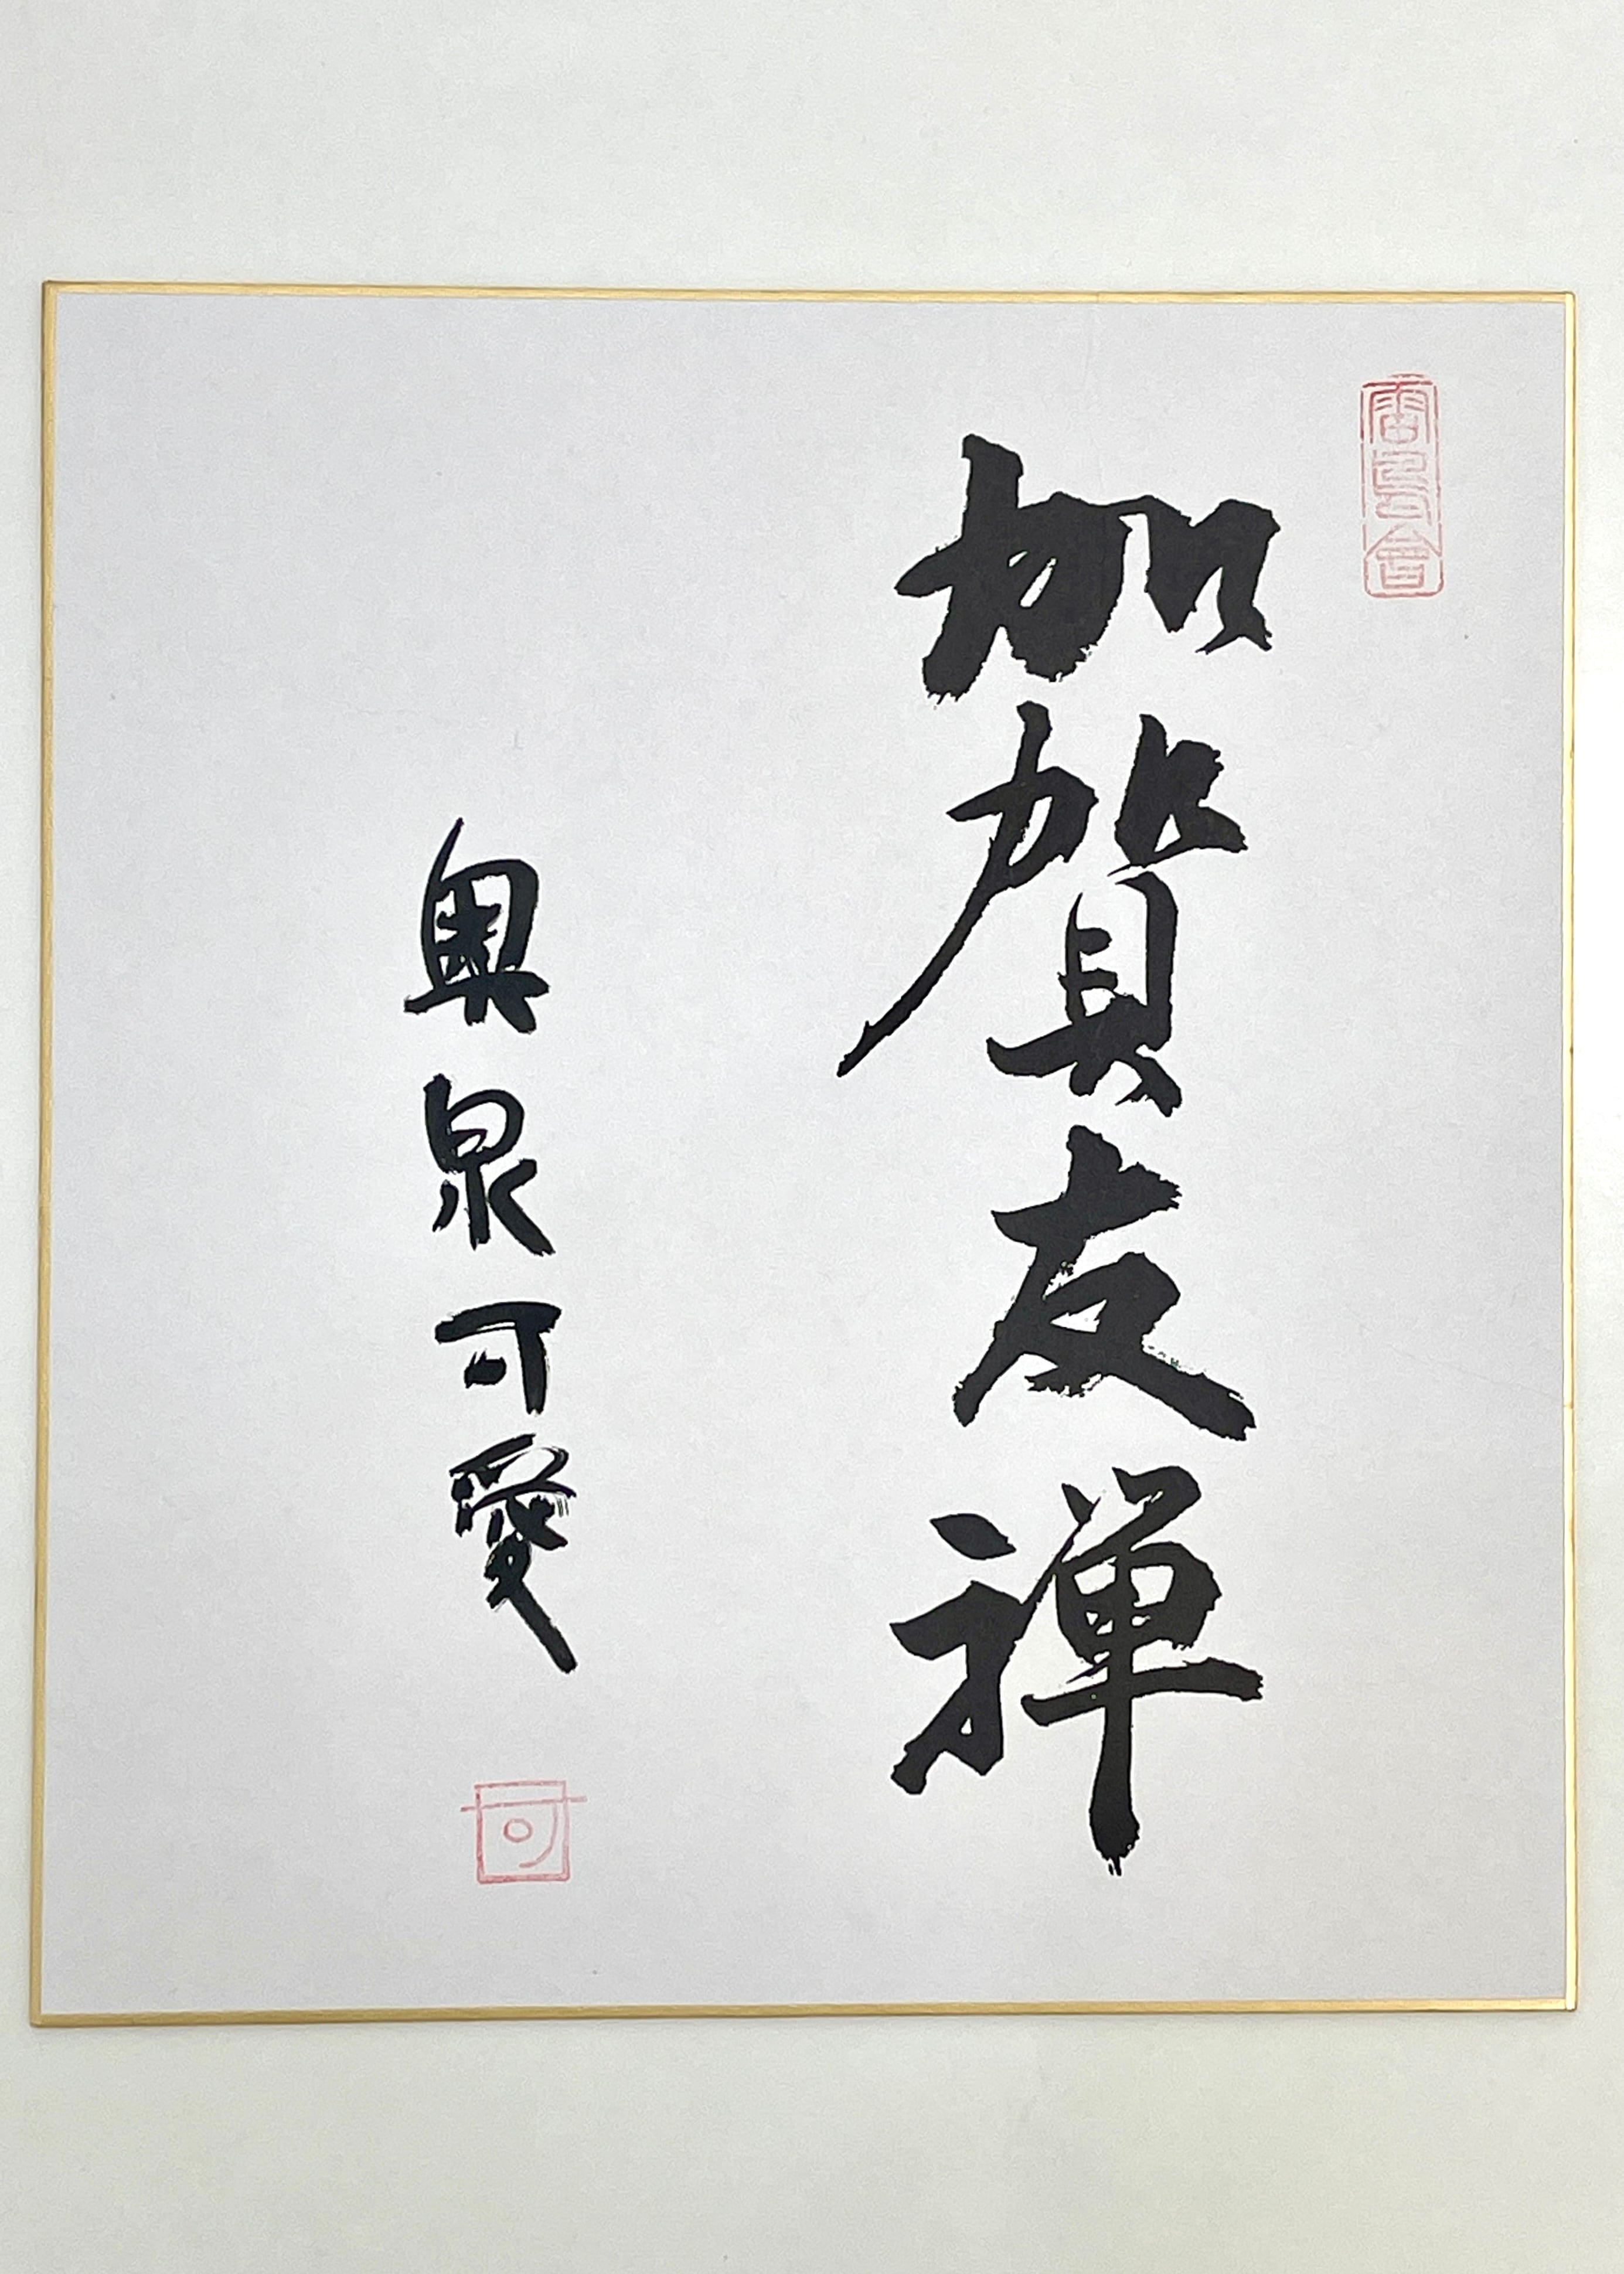 加賀友禅
奥泉可愛
可